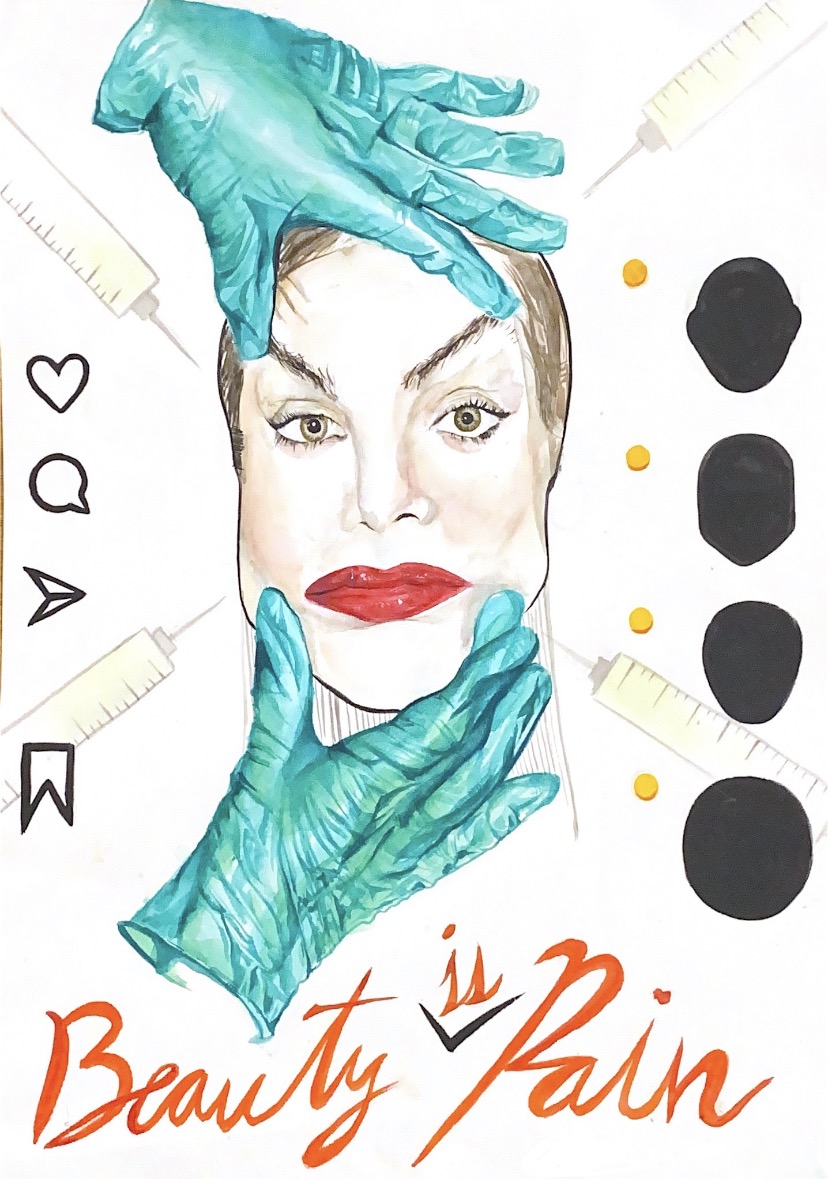 Beauty is Pain